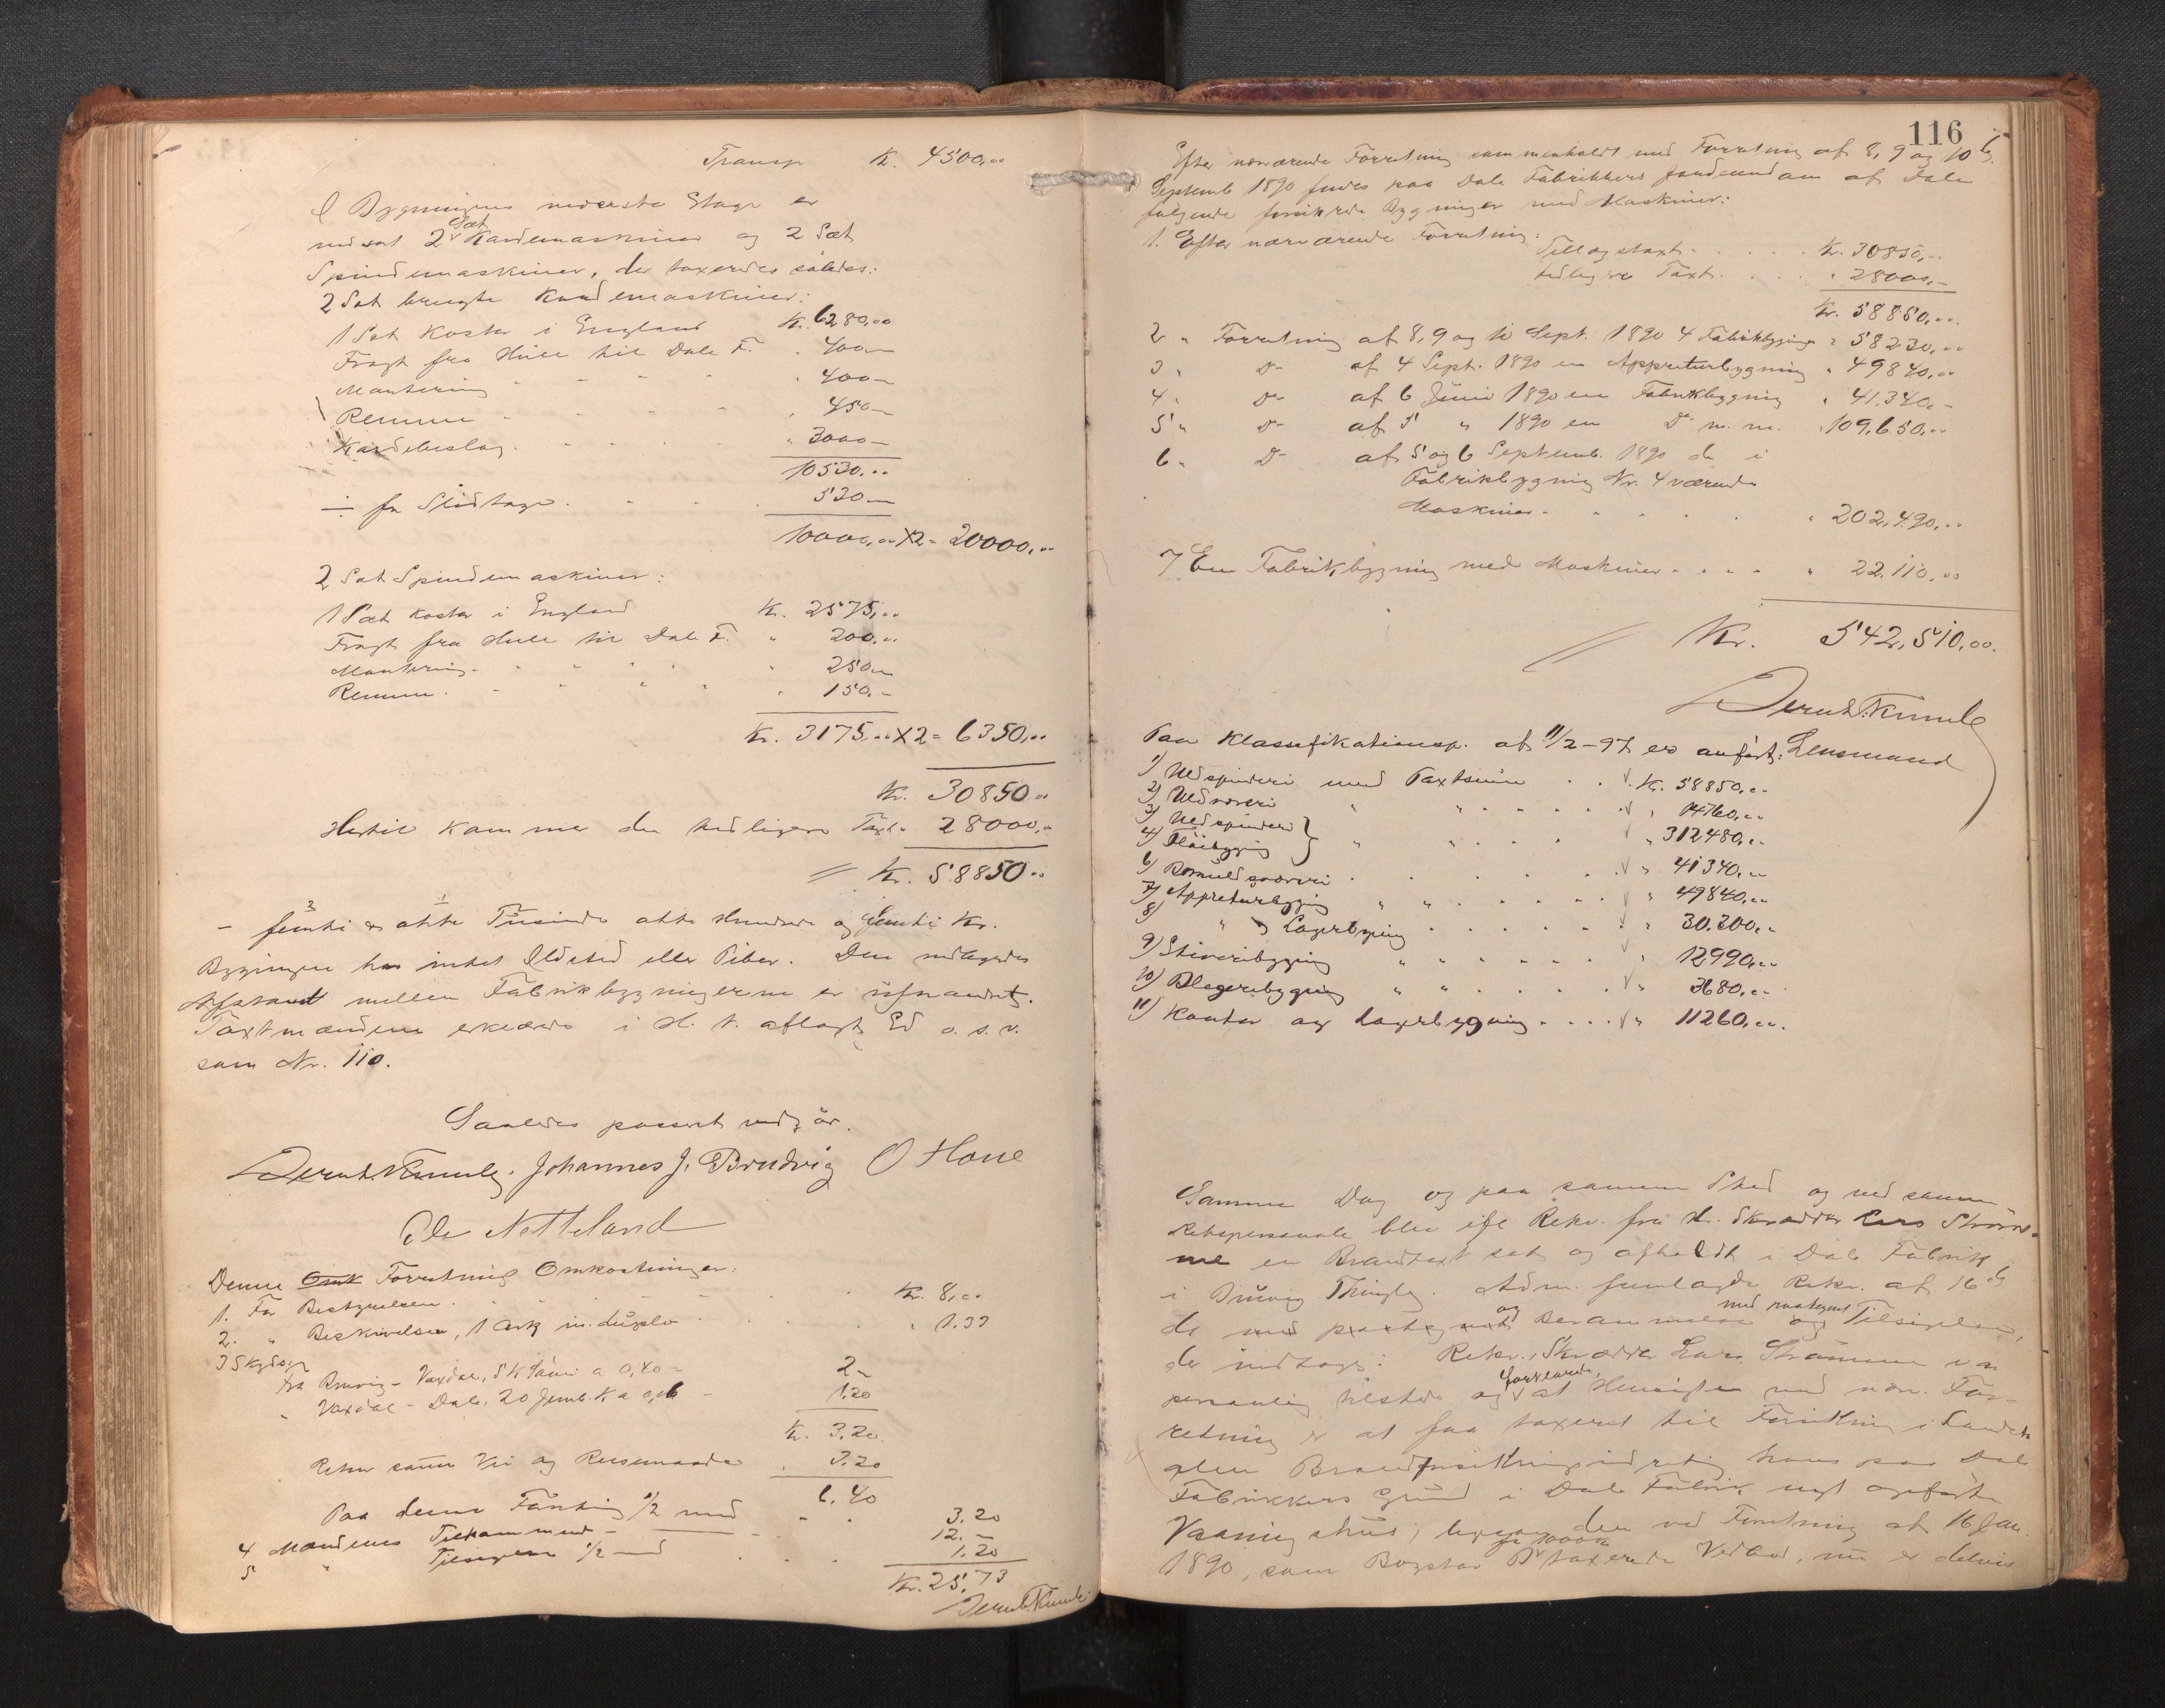 Transp Kr. 4500,00
I Bygningens nederste Etage er
nedsat 2 Sæt Kardemaskiner og 2 Sæt
Spindemaskiner, der taxeredes således:
2 Sæt brugte Kardemaskiner:
1 Sæt koster i England Kr. 6280,00
Fragt fra Hull til Dale F. " 400,—
Montering " 400—
Remme " 450—
Kardebeslag " 3000—
10530,00
÷ for Slidtage 530—
10000,00 X2 = 20000,00
2 Sæt Spindemaskiner:
1 Sæt koster i England Kr. 2575,00
Fragt fra Hull til Dale F. " 200,00
Montering " 250,—
Remme " 150,—
Kr. 3175,00 X2 = 6350,00
Kr. 30850,00
Hertil kommer den tidligere Taxt " 28000,00
// Kr. 58850,00
— femti & otte Tusinde otte Hundrede og femti Kr.
Bygningen har intet Ildsted eller Piber. Den
Afstand mellem Fabrikbygningerne er
Taxtmændene erklærede i H. t. aflagt Ed o. s. v.
som Nr. 110.
Saaledes passeret
Johannes J. Brudvig O Hone
Ole Netteland
Denne Omk Forretnings Omkostninger:
1. For Bestyrelsen Kr. 8,00
2. " Beskrivelsen, 1 Ark in duplo " 1.33
3 Skyds:
fra Bruvig - Vaxdal, 5 K a 0,40 = 2—
" Vaxdal - Dale, 20 Jernb. K a 0,06 - 1.20
Kr. 3,20
Retur samme Vei og Reisemaade " 3.20
6,40
Paa denne Forretning 1/2 med 3.20
4 Mændenes Tilkommende 12,—
5 " Tilsigelse 1/2 med 1.20
Kr. 25,73
116
Efter nærværende Forretning sammenholdt med Forretning af 8, 9 og 10 de
Septemb 1890 findes paa Dale Fabrikkers Jordeiendom af Dale
følgende forsikrede Bygninger med Maskiner:
1. Efter nærværende Forretning:
Tillægstaxt Kr. 30850,—
tidligere Taxt " 28000,—
Kr. 58850,00
2 " Forretning af 8, 9 og 10 Sept. 1890 4 Fabrikbygninger " 58230,00
3 " Do af 4 Sept. 1890 en Appreturbygning " 49840,00
4 " Do af 6 Juni 1890 en Fabrikbygning " 41,340,—
5 " Do af 5 " 1890 en Do m. m. " 109,650,00
6 " Do af 5 og 6 Septemb. 1890 de i
Fabrikbygning Nr. 4 værende
Maskiner " 202,490,00
7 En Fabrikbygning med Maskiner " 22.110,00
// Kr. 542,510,00.
Lensmand
Paa Klassifikationsp. af 11/2-97 er anført:
1) Uldspinderi med Taxtsum Kr. 58850,00
2) Uldvæveri " " 14760,00
3) Uldspinderi
4) Fløibygning } " " 312480,00
6) Bomuldsvæveri " 41340,00
7) Appreturbygning " " 49840,00
8) " Lagerbygning " 30.300,00
9) Stiveribygning " " 12990,00
10) Blegeribygning " " 3680,00
11) Kontor og Lagerbygning " 11260,00.
Samme Dag og paa samme Sted og ved samme
Retspersonale blev ifl Rekv. fra Hr. Skrædder Lars Strøm-
me en Brandtaxt sat og afholdt i Dale Fabrik
i Bruvig Thinglag. Adm. fremlagde Rekv. af 16 de
ds med paategnet og Berammelse og med paategnet Tilsigelse,
der indtages: Rekv., Skrædder Lars Strømme var
personlig tilstede og forklarede, at Hensigten med nærv. For-
retning er at faa taxeret til Forsikring i Landets
alm Brandforsikringsindretning hans paa Dale
Fabrikkers Grund i Dale Fabrik nyt opførte
Vaaningshus; den ved Forretning af 16 Jan.
1890, som Bogstav B for 1000 Kr taxerede Vedbod, nu er delvis